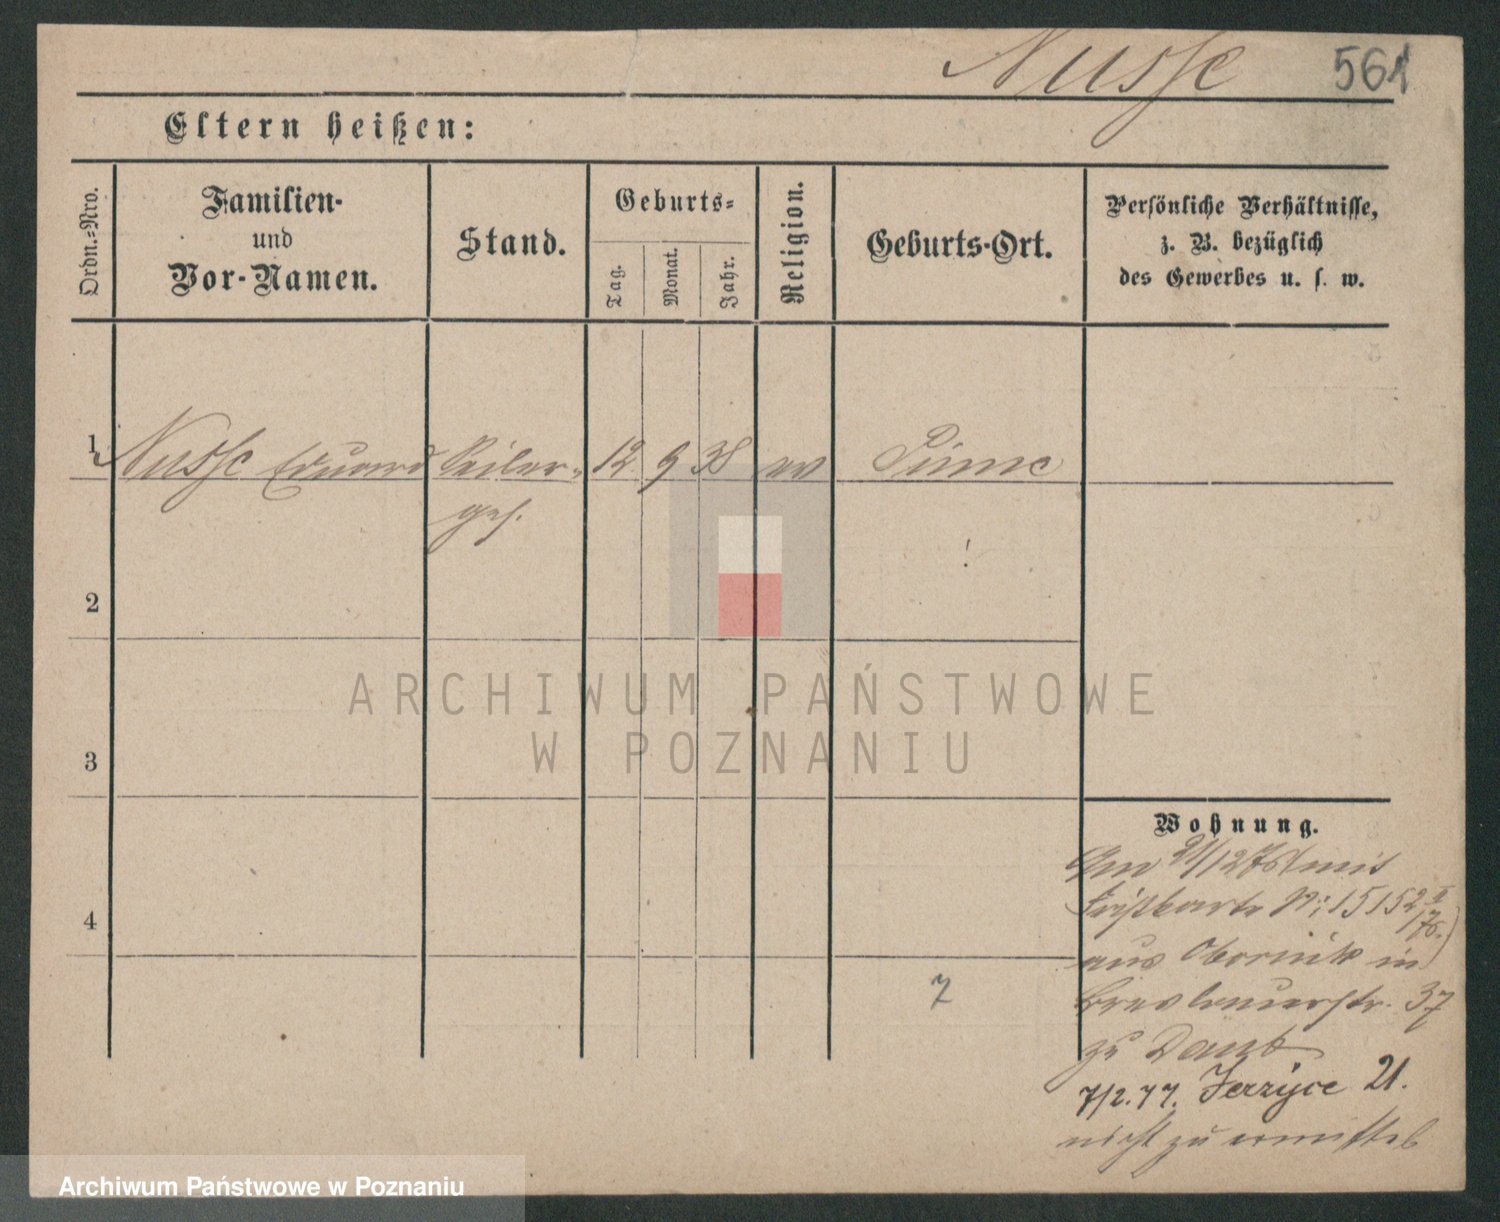 Nusse 561
Eltern heißen:
Ordn.-Nro.
Familien-
und
Vor-Namen.
Stand.
Geburts-
Tag.
Monat.
Jahr.
Religion.
Geburts-Ort.
Persönliche Verhältnisse,
z. B. bezüglich
des Gewerbes u. s. w.
1 Nusse Eduard Seiler- 12 9 38 ev Pinne
ges.
2
3
4
Wohnung.
Am 21/12 76 (mit
Paßkarte No 15152 II/76.)
aus Obornik in
Breslauerstr. 37
zu Dank
7/2.77. Jerzyce 21.
nicht zu ermitteln
7
ARCHIWUM PAŃSTWOWE
W POZNANIU
Archiwum Państwowe w Poznaniu